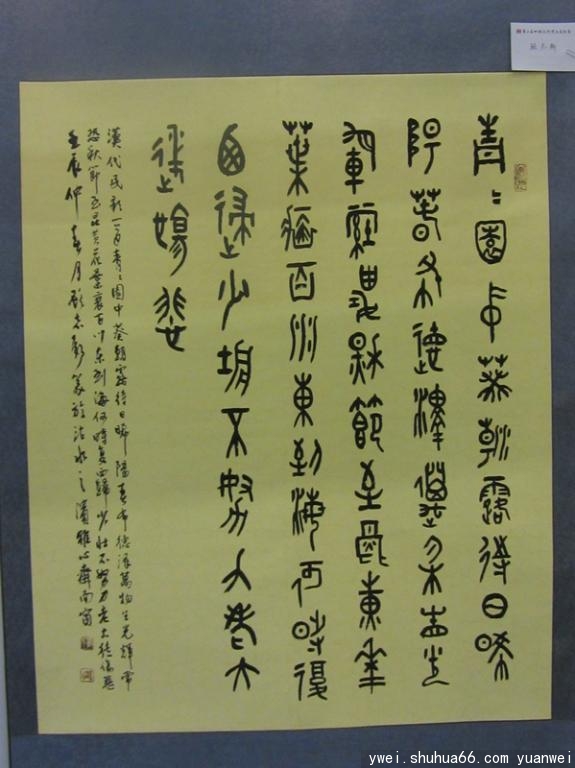 青〻園中葵朝露待日晞
陽春布德澤萬物生光
輝常恐秋節至焜黃華
葉衰百川東到海何時復
西歸少壯不努力老大
徒傷悲
漢代民歌一首青〻園中葵朝露待日晞陽春布德澤萬物生光輝常
恐秋節至焜黃花葉衰百川東到海何時復西歸少壯不努力老大徒傷悲
壬辰仲春月顧志新篆於沽水之濱雅心齋南窗
ywei.shuhua66.com yuanwei